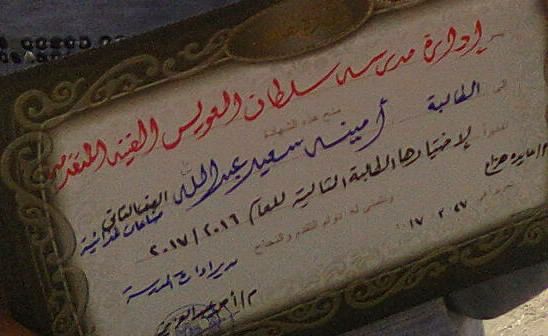 إدارة مدرسة سلطان العويس الفنية المتقدمة
تمنح هذه الشهادة
إلى الطالبة أمينة سعيد عبدالله الصف الثاني
لاختيارها الطالبة المثالية للعام ٢٠١٦ / ٢٠١٧
ونتمنى له دوام التقدم والنجاح
٢٠١٧ . ٢ . ٢٧
مدير إدارة المدرسة
م / أحمد